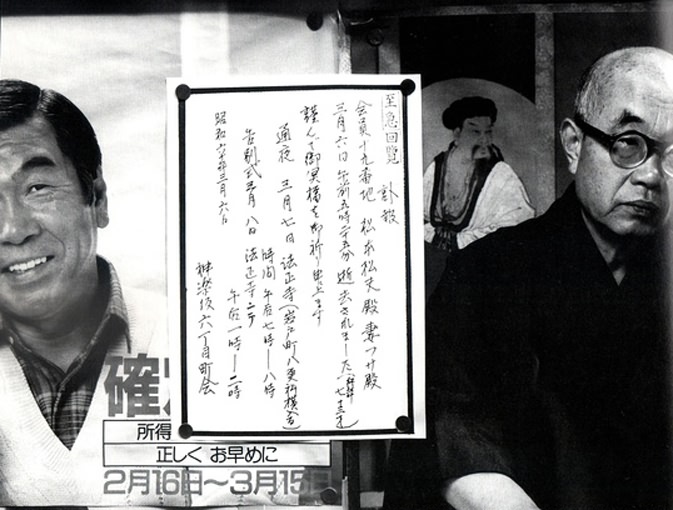 至急回覧 訃報
会員十九番地 松本松夫殿妻つサ殿
三月六日 午前五時二十五分逝去されました(享年七十三才)
謹んで御冥福を御祈り申上ます
通夜 三月七日 法正寺(岩戸町八更科横舎)
時間 午后七時―八時
告別式 三月八日 法正寺ニテ
午后一時―二時
昭和六十年三月六日
神楽坂六丁目町会
確
所得
正しく お早めに
2月16日~3月15日